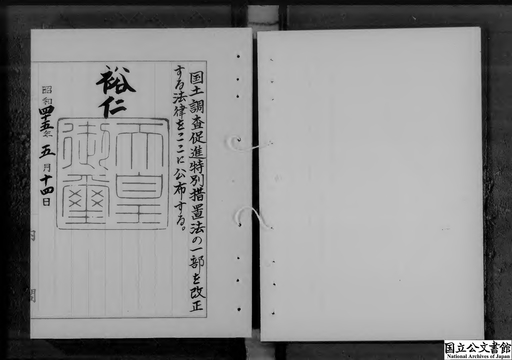 国土調査促進特別措置法の一部を改正
する法律をここに公布する。
裕仁
天皇
御璽
昭和四十五年五月十四日
国立公文書館
National Archives of Japan